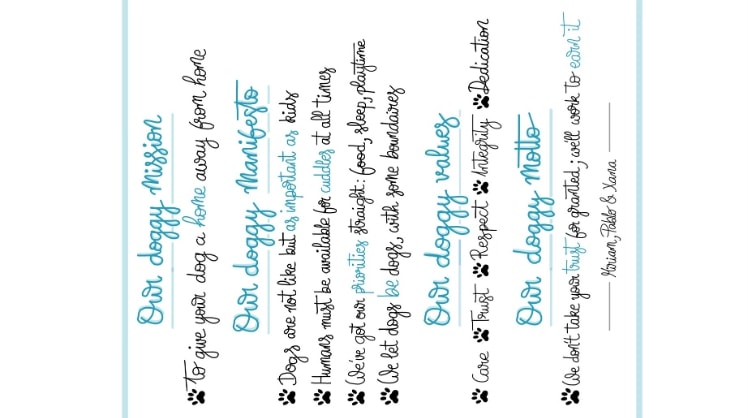 Our doggy Mission
To give your dog a home away from home
Our doggy Manifesto
Dogs are not like but as important as kids
Humans must be available for cuddles at all times
We've got our priorities straight: food, sleep, playtime
We let dogs be dogs, with some boundaires
Our doggy values
Care Trust Respect Integrity Dedication
Our doggy Motto
We don't take your trust for granted; we'll work to earn it
Miriam, Pablo & Xana